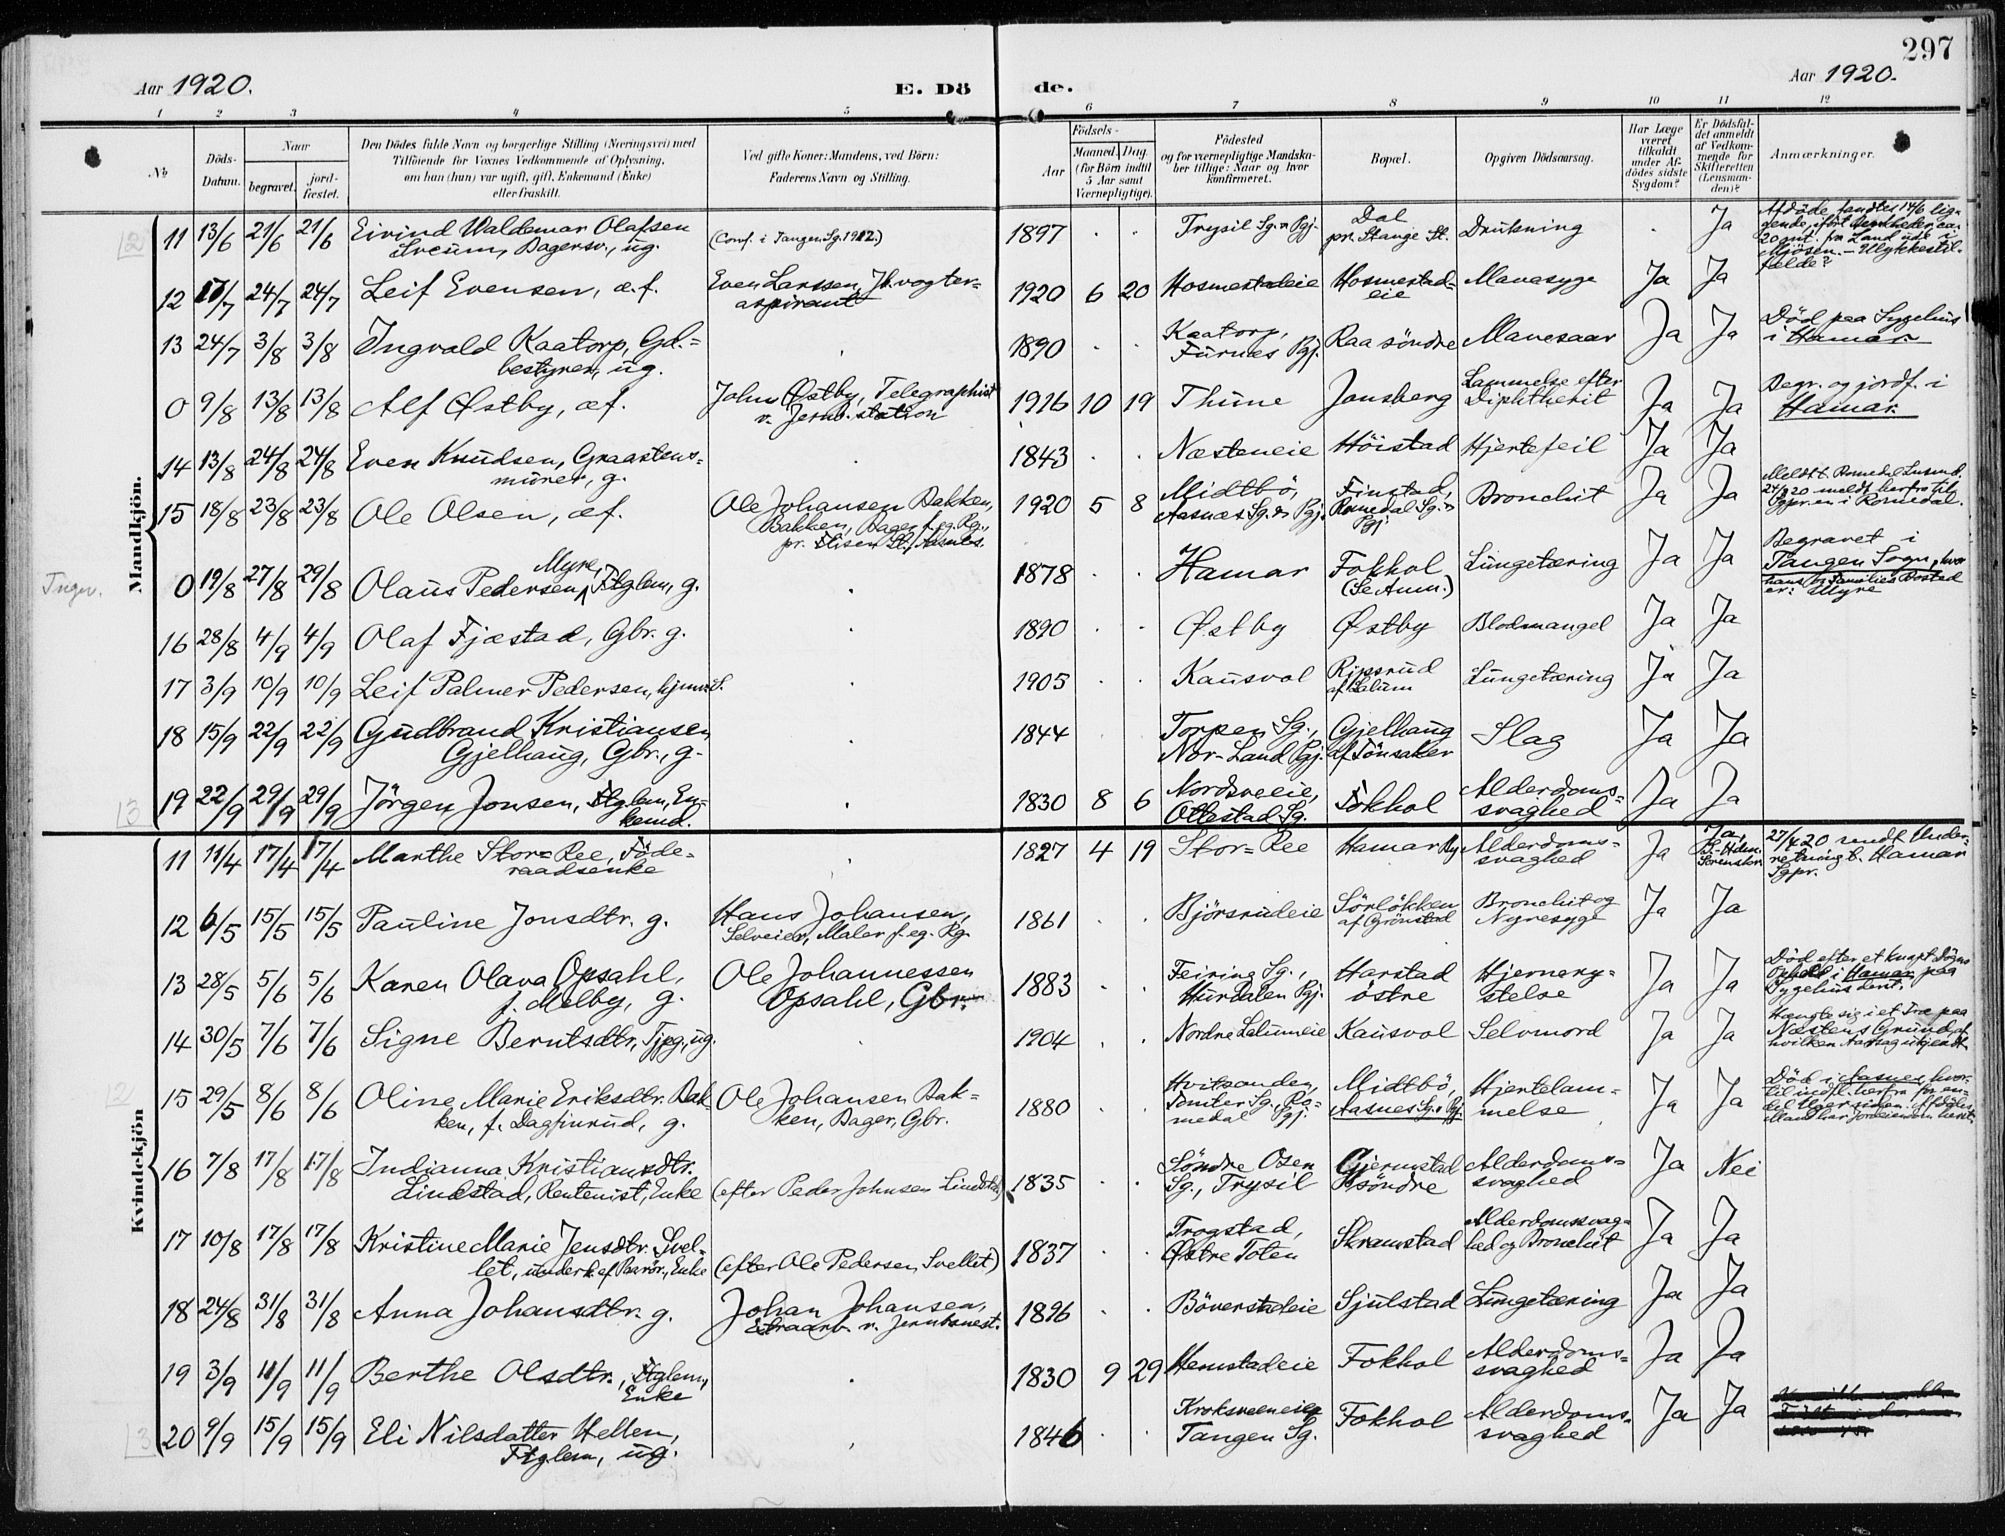 297
Aar 1920.
E. Dö de.
Aar 1920.
1 2 3 4 5 6 7 8 9 10 11 12
No
Döds-Datum.
Naar
begravet.
jord-fæstet.
Den Dödes fulde Navn og borgerlige Stilling (Næringsvei) med
Tilföiende for Voxnes Vedkommende af Oplysning,
om han (hun) var ugift, gift, Enkemand (Enke)
eller fraskilt.
Ved gifte Koner: Mandens, ved Börn:
Faderens Navn og Stilling.
Födsels-
Aar
Maaned. Dag
(for Börn indtil
5 Aar samt
Værnepligtige).
Födested
og for værnepligtige Mandska-
ber tillige: Naar og hvor
konfirmeret.
Bopæl.
Opgiven Dödsaarsag.
Har Læge
været
tilkaldt
under Af-
dödes sidste
Sygdom?
Er Dödsfal-
det anmeldt
af Vedkom-
mende for
Skifteretten
(Lensman-
den)?
Anmærkninger.
Mandkjön.
11 13/6 21/6 21/6 Eivind Waldemar Olafsen Sveum, Dagarb., ug. (Conf. i Tangen Sg. 1912.) 1897 . . Trysil Sg. & Pgj. Dal pr. Stange St. Drukning . Ja Afdöde fandtes 14/6 lig-
gende, iført
20 mt. fra Land ude i
Mjösen. - Ulykkestil-
fælde?
12 17/7 24/7 24/7 Leif Evensen, æ.f. Even Larssen, Jb.vogter-
aspirant 1920 6 20 Hosmestadeie Hosmestad-
eie Mavesyge Ja Ja
13 24/7 3/8 3/8 Ingvald Kaatorp, Gd.-
bestyrer, ug. . 1890 . . Kaatorp, Furnes Pgj. Raa söndre Mavesaar Ja Ja Död paa Sygehus
i Hamar.
0 9/8 13/8 13/8 Alf Østby, æf. John Østby, Telegraphist
v. Jernb. station 1916 10 19 Thune Jonsberg Lammelse efter
Diphtherit Ja Ja Begr. og jordf. i
Hamar.
14 13/8 24/8 24/8 Even Knudsen, Graastens-
murer, g. . 1843 . . Næsteneie Höistad Hjertefeil Ja Ja
15 18/8 23/8 23/8 Ole Olsen, æf. Ole Johansen Bakken,
Bakken, Dager f. eg. Rg.,
pr. Flisen St., Aasnes. 1920 5 8 Midtbö,
Aasnes Sg. & Pgj. Finstad,
Romedal Sg. &
Pgj. Bronchit Ja Ja Meldt t. Romedal
24/8 20 meldt herfra til
Sgpr.en i Romedal.
Tngn.
0 19/8 27/8 29/8 Olaus Pedersen Myre, Ftglem, g. . 1878 . . Hamar Fokhol
(Se Anm.) Lungetæring Ja Ja Begravet i
Tangen Sogn, hvor
hans & Families Bosted
er: Myre
16 28/8 4/9 4/9 Olaf Fjæstad, Gbr. g. . 1890 . . Østby Østby Blodmangel Ja Ja
17 3/9 10/9 10/9 Leif Palmer Pedersen, hjmv. S. . 1905 . . Kausvol Ripsrud
af Lalum Lungetæring Ja Ja
18 15/9 22/9 22/9 Gudbrand Kristiansen
Gjelhaug, Gbr., g. . 1844 . . Torpen Sg.,
Nor-Land Pgj. Gjelhaug
af Tönsaker Slag Ja Ja
19 22/9 29/9 29/9 Jörgen Jonsen, Ftglem, En-
kemd. . 1830 8 6 Nordsveeie,
Ottestad Sg. Fokhol Alderdoms-
svaghed Ja Ja
Kvindekjön
11 11/4 17/4 17/4 Marthe Stor-Ree, Föde-
raadsenke . 1827 4 19 Stor-Ree Hamar By Alderdoms-
svaghed Ja Ja, 27/4 20 sendt Under-
retning t. Hamar
Sgpr.
12 6/5 15/5 15/5 Pauline Jonsdtr. g. Hans Johansen,
Selveier, Maler f. eg. Rg. 1861 . . Björsrudeie Sörlökken
af Grönstad Bronchit og
Nyresyge Ja Ja
13 28/5 5/6 5/6 Karen Olava Opsahl,
f. Melby, g. Ole Johannessen
Opsahl, Gbr. 1883 . . Feiring Sg.,
Hurdalen Pgj. Harstad
östre Hjernery-
stelse Ja Ja Död efter et knapt Dögns
Ophold i Hamar paa
Sygehus dert.
14 30/5 7/6 7/6 Signe Berntsdtr, Tjpg, ug. . 1904 . . Nordre Lalumeie Kausvol Selvmord Ja Ja Hængte sig i et Træ paa
Næstens Grund af
hvilken Aarsag ukjendt.
15 29/5 8/6 8/6 Oline Marie Eriksdtr. Bak-
ken, f. Dagfinrud, g. Ole Johansen Bak-
ken, Dager, Gbr. 1880 . . Hvitsanden,
Tomter Sg. Ro-
medal Pgj. Midtbö,
Aasnes Sg. & Pgj. Hjertelam-
melse Ja Ja Död i Aasnes, hvor-
til indfl. herfra for en-
del Uger siden. Afdödes
Mand har Jordeiendom hersteds.
16 7/8 17/8 17/8 Indianna Kristiansdtr.
Lindstad, Rentenist, Enke (efter Peder Johnsen Lindstad) 1835 . . Söndre Osen
Sg., Trysil Gjermstad
söndre Alderdoms-
svaghed Ja Nei
17 10/8 17/8 17/8 Kristine Marie Jensdtr. Svel-
let, underh. af Paarör., Enke (efter Ole Pedersen Svellet) 1837 . . Trogstad,
Østre Toten Skramstad Alderdomssvag-
hed og Bronchit Ja Ja
18 24/8 31/8 31/8 Anna Johansdtr. g. Johan Johansen,
Extraarb. v. Jernbanest. 1896 . . Böverstadeie Sjulstad Lungetæring Ja Ja
19 3/9 11/9 11/9 Berthe Olsdtr., Ftglem,
Enke . 1830 9 29 Hemstadeie Fokhol Alderdoms-
svaghed Ja Ja
20 9/9 15/9 15/9 Eli Nilsdatter Hellen,
Ftglem, ug. . 1846 . . Kroksveeneie,
Tangen Sg. Fokhol Alderdoms-
svaghed Ja Ja